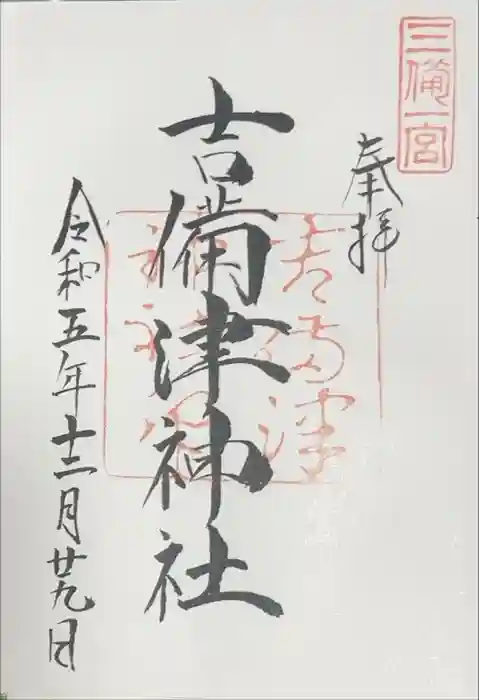 三備一宮
奉拝
吉備津神社
吉備津
令和五年十二月廿九日